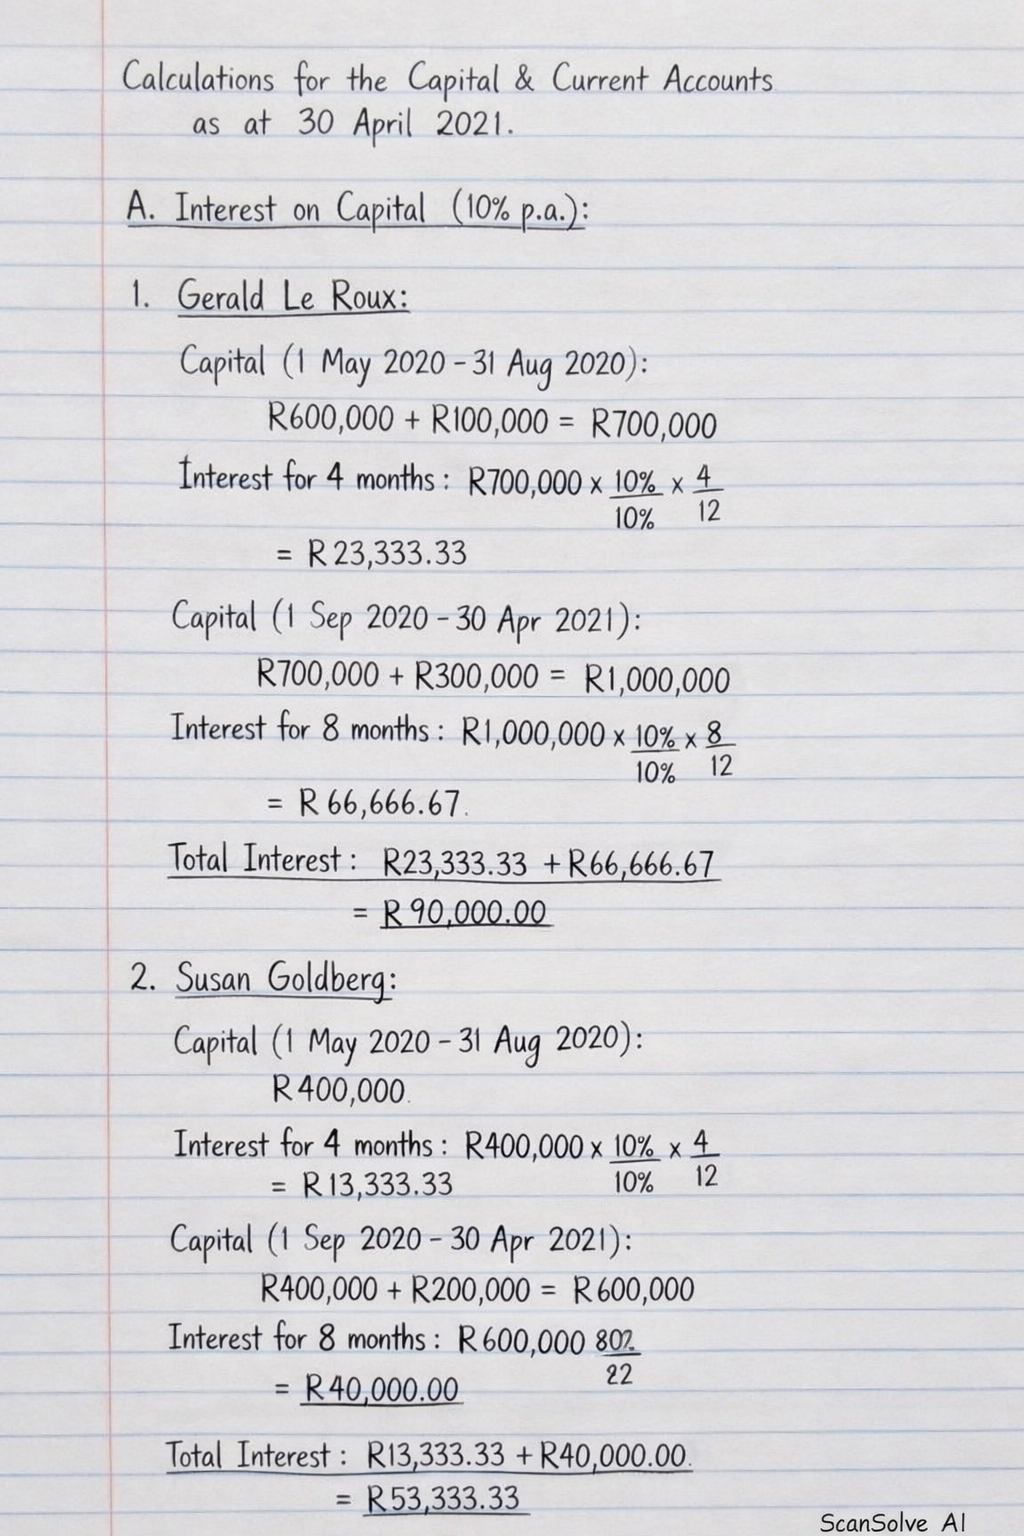 Calculations for the Capital & Current Accounts
as at 30 April 2021.
A. Interest on Capital (10% p.a.):
1. Gerald Le Roux:
Capital (1 May 2020 - 31 Aug 2020):
R600,000 + R100,000 = R700,000
Interest for 4 months: R700,000 x 10%/10% x 4/12
= R23,333.33
Capital (1 Sep 2020 - 30 Apr 2021):
R700,000 + R300,000 = R1,000,000
Interest for 8 months: R1,000,000 x 10%/10% x 8/12
= R66,666.67.
Total Interest: R23,333.33 + R66,666.67
= R90,000.00
2. Susan Goldberg:
Capital (1 May 2020 - 31 Aug 2020):
R400,000.
Interest for 4 months: R400,000 x 10%/10% x 4/12
= R13,333.33
Capital (1 Sep 2020 - 30 Apr 2021):
R400,000 + R200,000 = R600,000
Interest for 8 months: R600,000 80%/22
= R40,000.00
Total Interest: R13,333.33 + R40,000.00.
= R53,333.33
ScanSolve AI